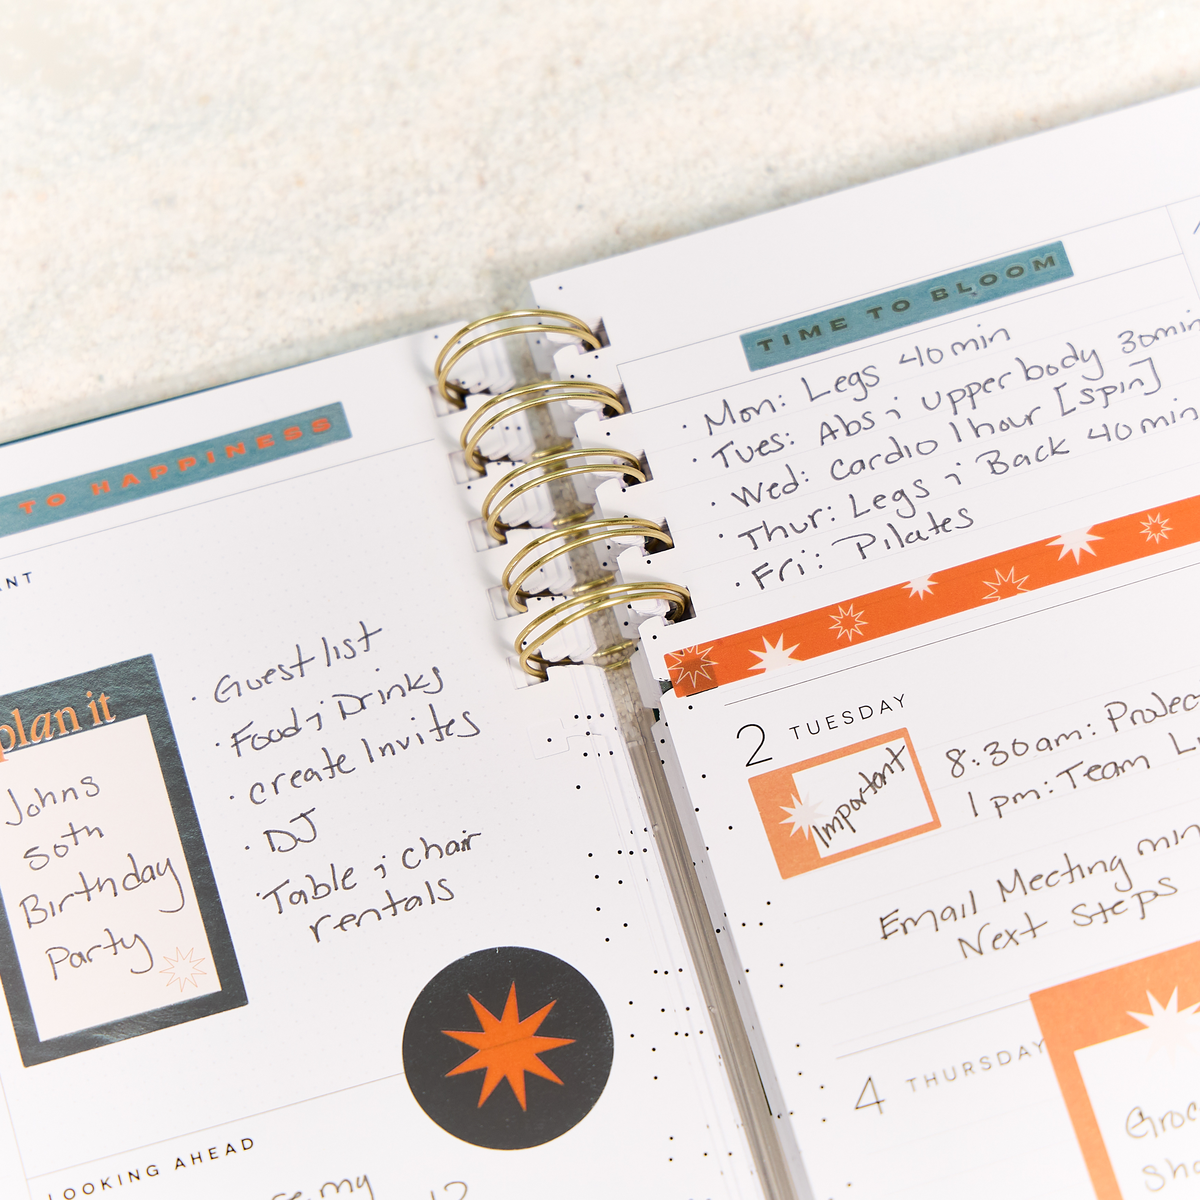 TO HAPPINESS
plan it
Johns
50th
Birthday
Party
· Guest list
· Food & Drinks
· create Invites
· DJ
· Table & chair
rentals
LOOKING AHEAD
my
TIME TO BLOOM
· Mon: Legs 40 min
· Tues: Abs & upper body 30min
· Wed: Cardio 1 hour [spin]
· Thur: Legs & Back 40 min
· Fri: Pilates
2 TUESDAY
Important
8:30am:
1 pm: Team
Email Meeting min
Next Steps
4 THURSDAY